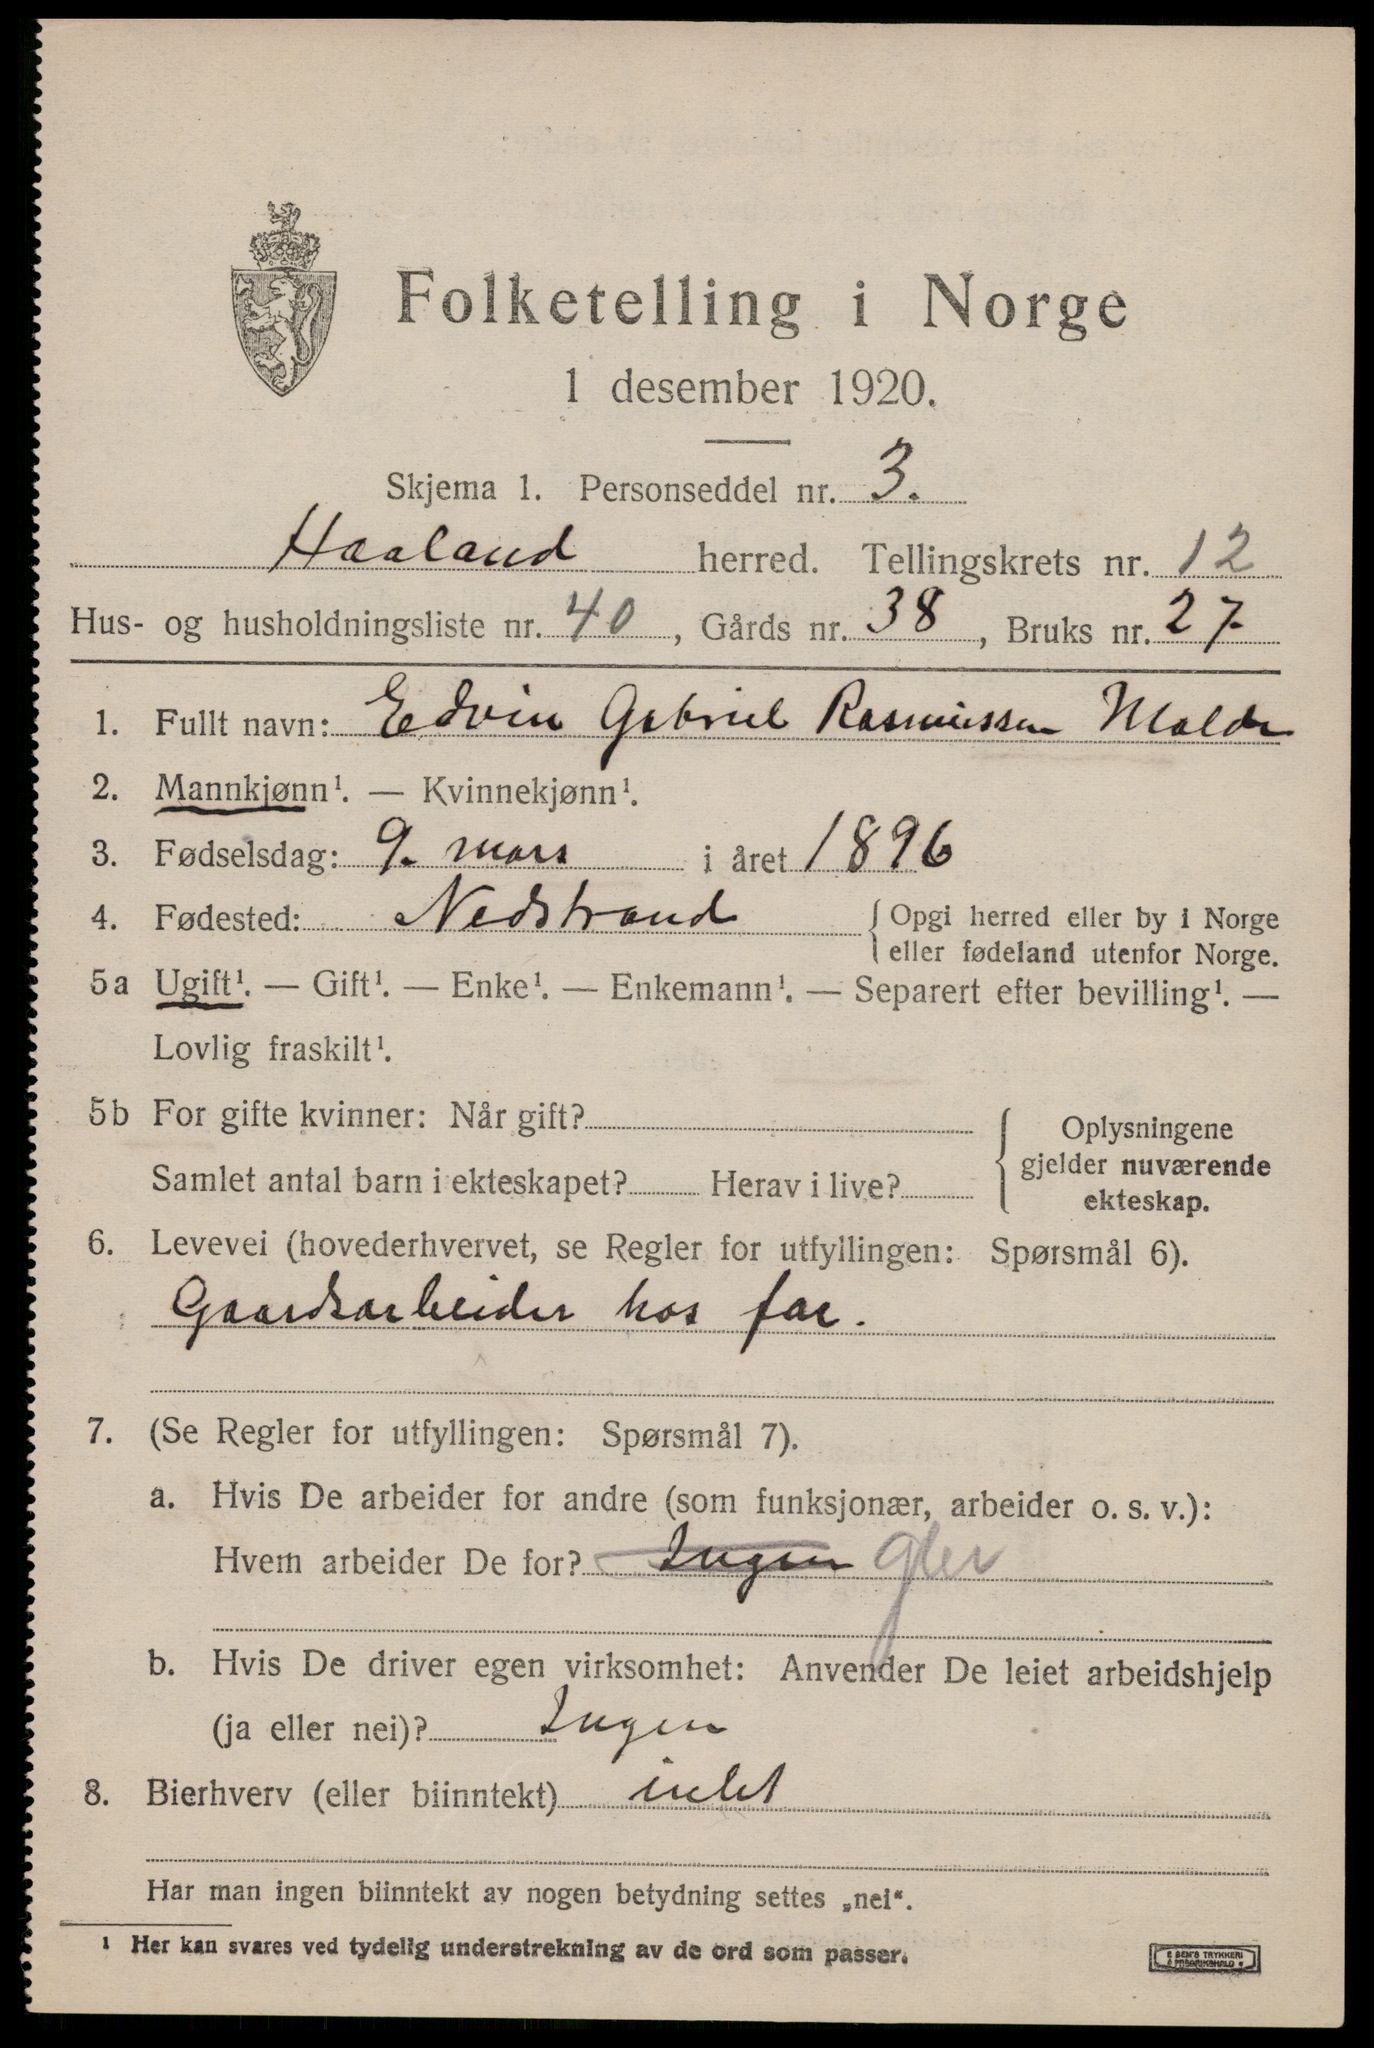 Folketelling i Norge
1 desember 1920.
Skjema 1. Personseddel nr. 3.
Haaland herred. Tellingskrets nr. 12
Hus- og husholdningsliste nr. 40, Gårds nr. 38, Bruks nr. 27
1. Fullt navn: Edvin Gabriel Rasmussen Malde
2. Mannkjønn¹. — Kvinnekjønn¹.
3. Fødselsdag: 9. mars i året 1896
4. Fødested: Nedstrand { Opgi herred eller by i Norge
eller fødeland utenfor Norge.
5a Ugift¹. — Gift¹. — Enke¹. — Enkemann¹. — Separert efter bevilling¹. —
Lovlig fraskilt¹.
5b For gifte kvinner: Når gift?
Samlet antal barn i ekteskapet? Herav i live?
Oplysningene
gjelder nuværende
ekteskap.
6. Levevei (hovederhvervet, se Regler for utfyllingen: Spørsmål 6).
Gaardsarbeider hos far.
7. (Se Regler for utfyllingen: Spørsmål 7).
a. Hvis De arbeider for andre (som funksjonær, arbeider o. s. v.):
Hvem arbeider De for? Ingen
b. Hvis De driver egen virksomhet: Anvender De leiet arbeidshjelp
(ja eller nei)? Ingen
8. Bierhverv (eller biinntekt) intet
Har man ingen biinntekt av nogen betydning settes „nei“.
¹ Her kan svares ved tydelig understrekning av de ord som passer.